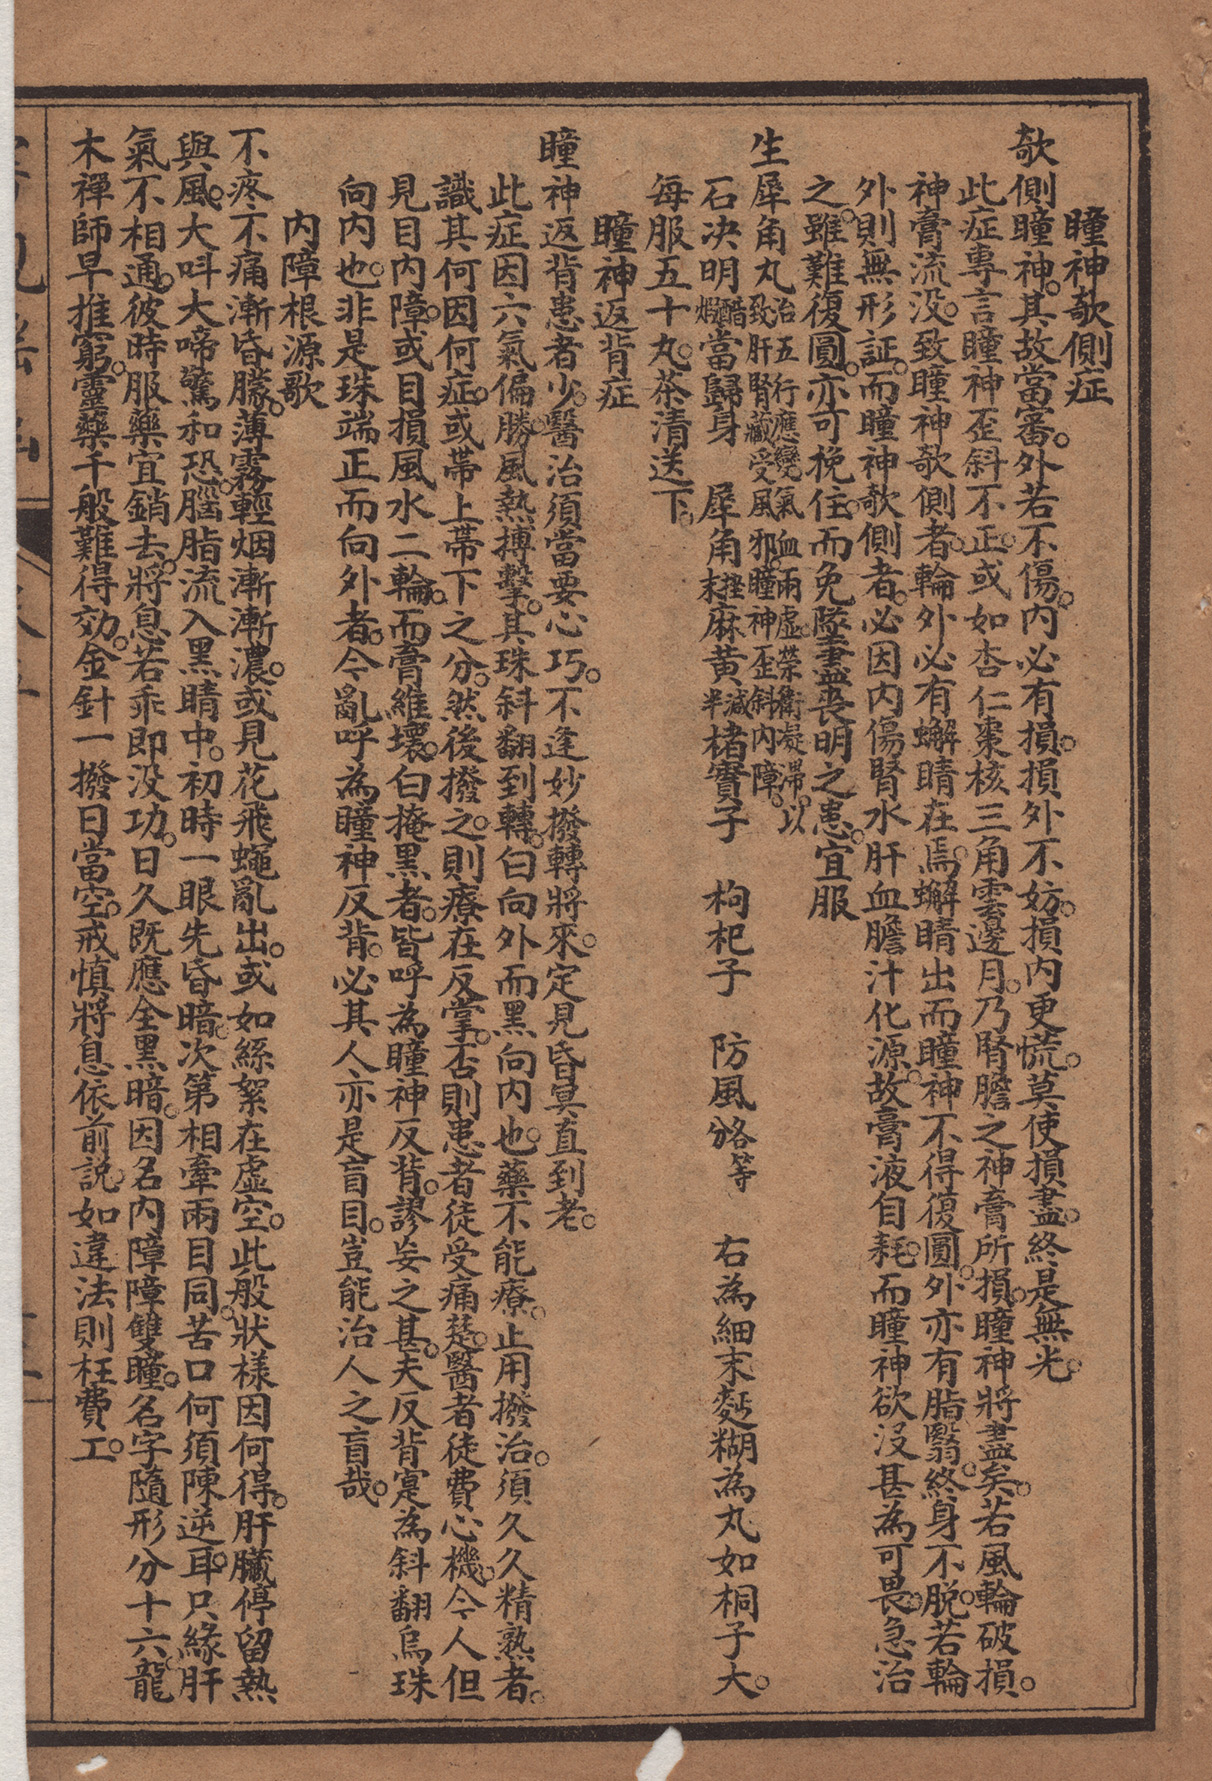 瞳神欹側症
欹側瞳神。其故當審。外若不傷。內必有損。損外不妨。損內更慌。莫使損盡。終是無光。
此症專言瞳神歪斜不正。或如杏仁棗核三角雲邊月。乃腎膽之神膏所損。瞳神將盡矣。若風輪破損。
神膏流没。致瞳神欹側者。輪外必有蠏睛在焉。蠏睛出而瞳神不得復圓。外亦有脂翳。終身不脱。若輪
外則無形証。而瞳神欹側者。必因內傷腎水肝血膽汁化源。故膏液自耗。而瞳神欲没甚為可畏。急治
之。雖難復圓。亦可挽住。而免墜盡喪明之患。宜服
生犀角丸治五行應變氣血兩虛。榮衛凝滯。以致肝腎藏受風邪。瞳神歪斜內障。
石决明醋煅當歸身　犀角末挫麻黃減半楮實子　枸杞子　防風各等分　右為細末麪糊為丸如桐子大。
每服五十丸。茶清送下。
瞳神返背症
瞳神返背患者少。醫治須當要心巧。不逢妙撥轉將來。定見昏冥直到老。
此症因六氣偏勝。風熱摶擊。其珠斜翻到轉。白向外而黑向內也。藥不能療。止用撥治。須久久精熟者。
識其何因何症。或帶上帶下之分。然後撥之。則療在反掌。否則患者徒受痛楚。醫者徒費心機。今人但
見目內障。或目損風水二輪。而膏維壞。白掩黑者。皆呼為瞳神反背。謬妄之甚。夫反背寔為斜翻烏珠
向內也。非是珠端正而向外者。今亂呼為瞳神反背。必其人亦是盲目。豈能治人之盲哉。
內障根源歌
不疼不痛漸昏朦。薄霧輕烟漸漸濃。或見花飛蠅亂出。或如絲絮在虛空。此般狀樣因何得。肝臟停留熱
與風。大呌大啼驚和恐。腦脂流入黑睛中。初時一眼先昏暗。次第相牽兩目同。苦口何須陳逆耳。只緣肝
氣不相通。彼時服藥宜銷去。將息若乖即没功。日久既應全黑暗。因名內障障雙瞳。名字隨形分十六。龍
木禪師早推窮。靈藥千般難得効。金針一撥日當空。戒慎將息依前說。如違法則枉費工。